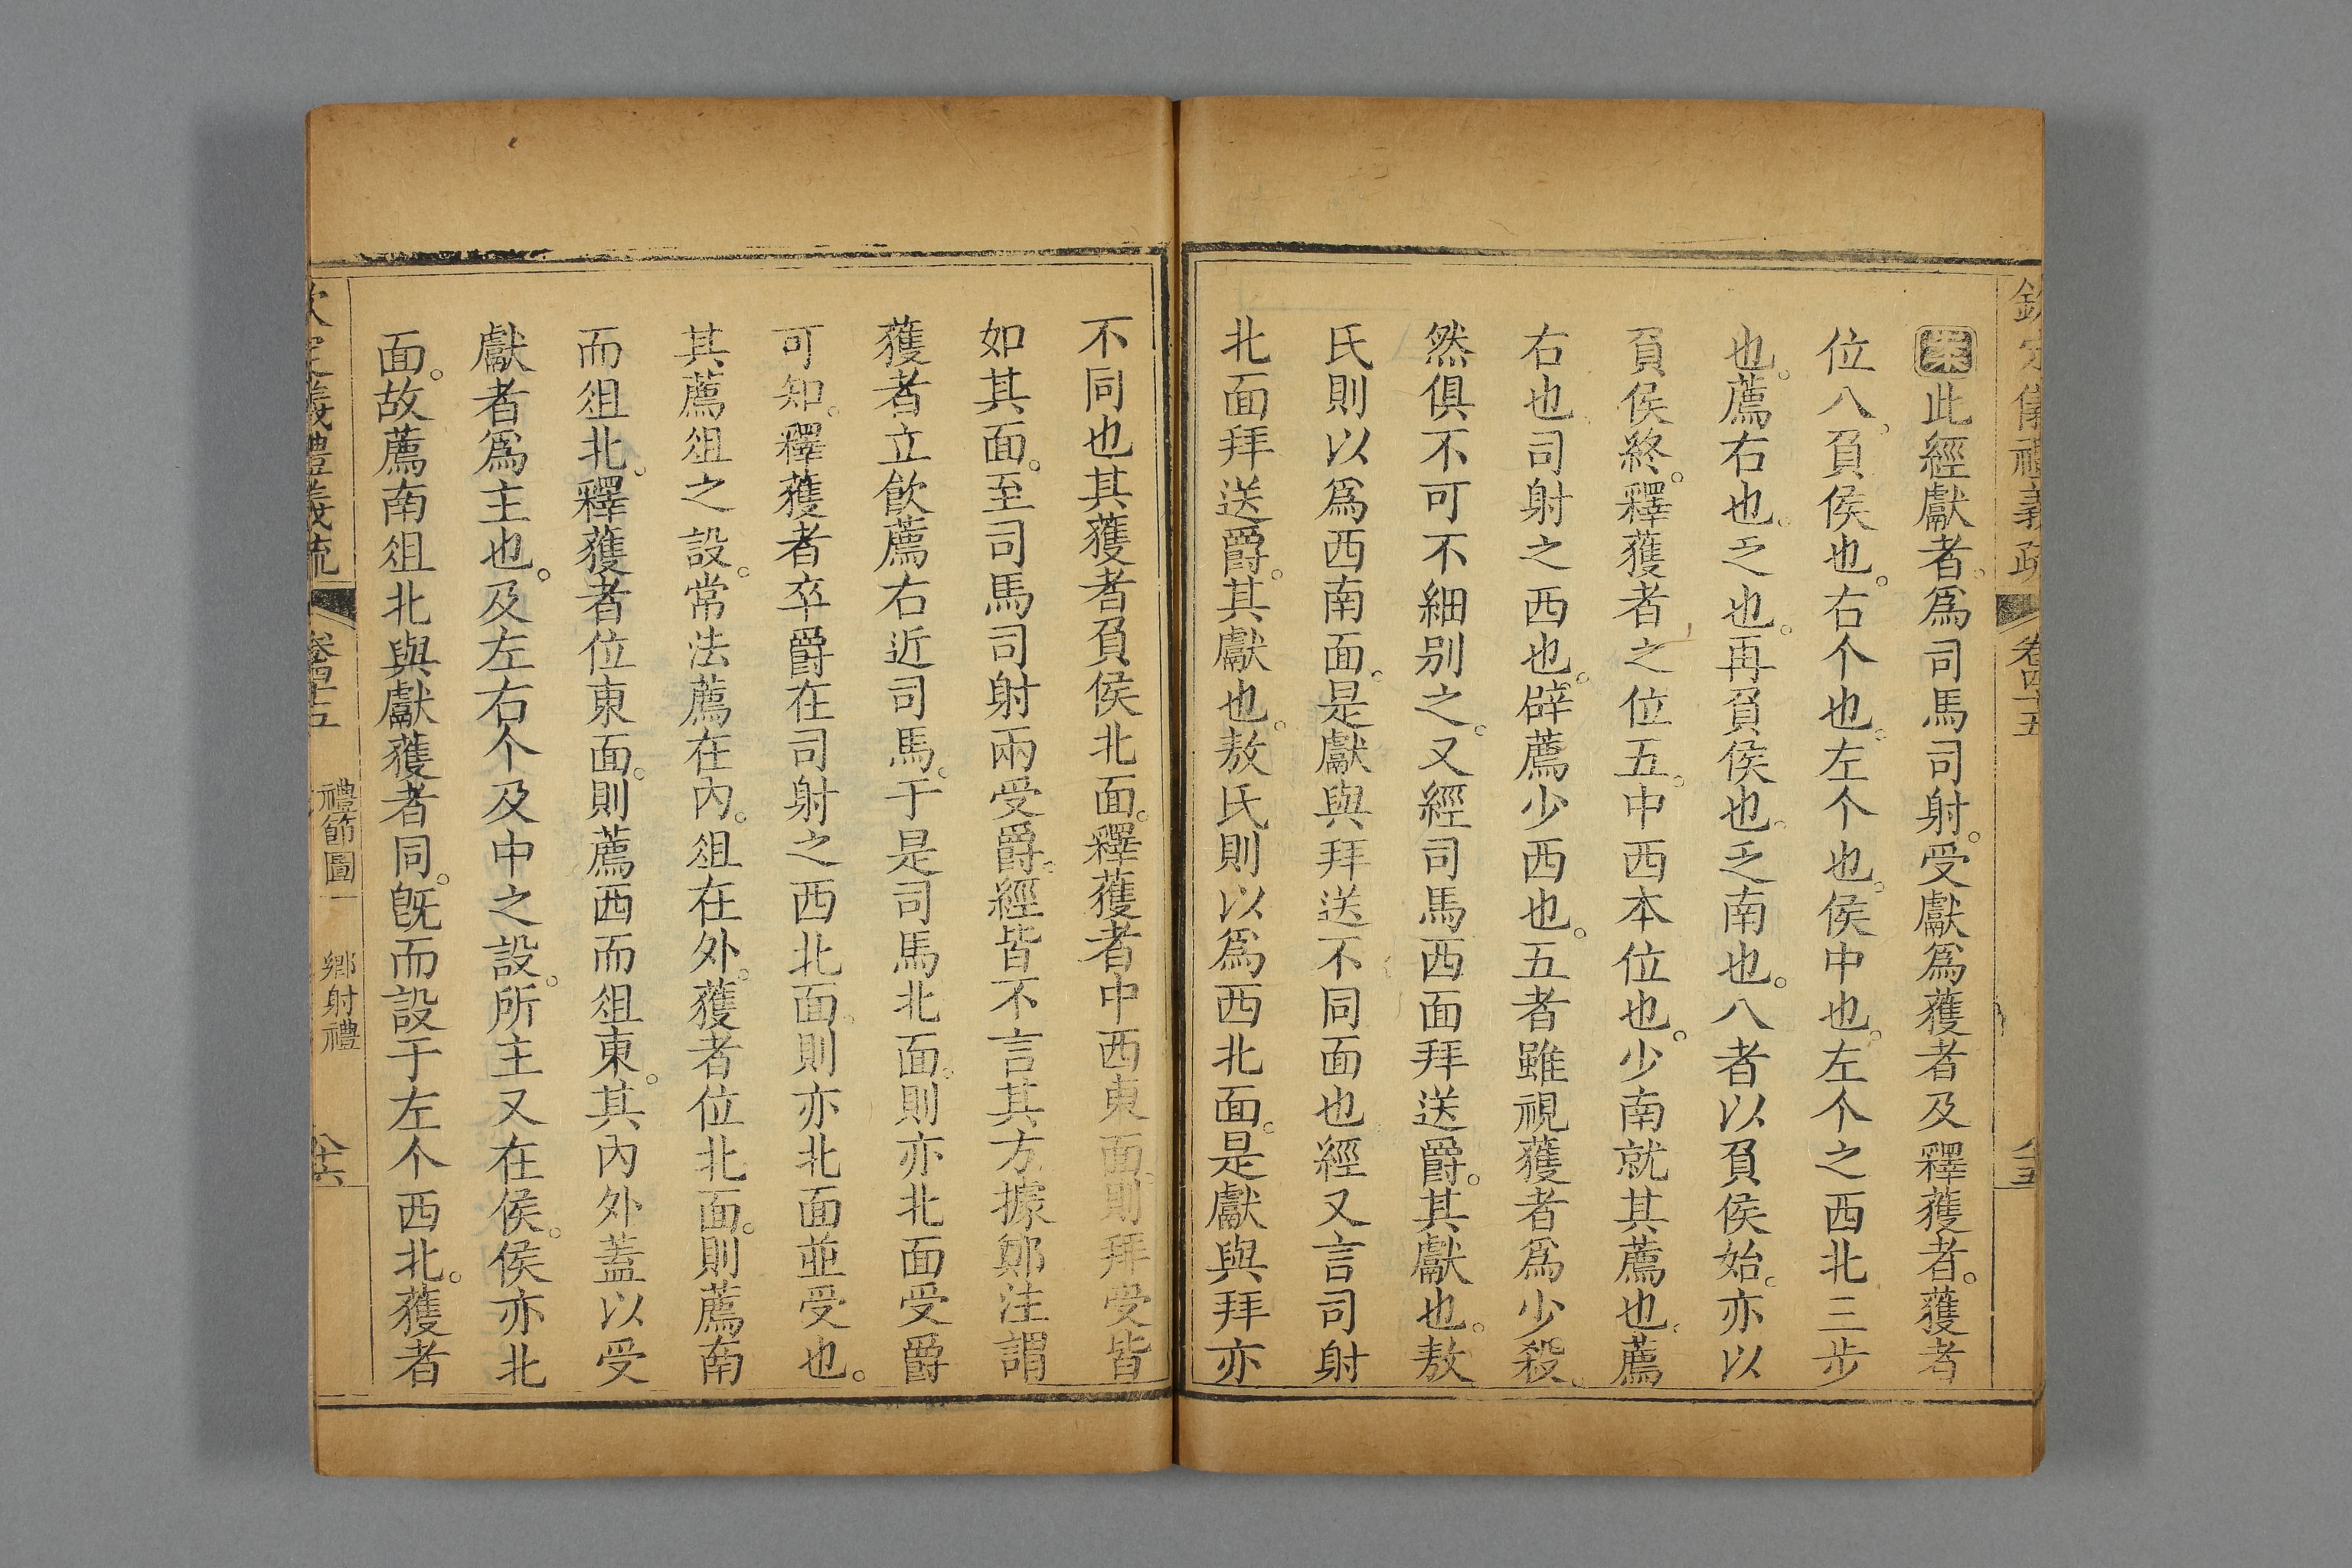 欽定儀禮義疏 卷四十五 八十五
案此經獻者。爲司馬司射。受獻爲獲者及釋獲者。獲者
位八。負侯也。右个也。左个也。侯中也。左个之西北三步
也。薦右也。乏也。再負侯也。乏南也。八者以負侯始。亦以
負侯終。釋獲者之位五。中西本位也。少南就其薦也。薦
右也司射之西也。辟薦少西也。五者雖視獲者爲少殺。
然俱不可不細別之。又經司馬西面拜送爵。其獻也。敖
氏則以爲西南面。是獻與拜送不同面也經又言司射
北面拜送爵。其獻也。敖氏則以爲西北面。是獻與拜亦
不同也其獲者負侯北面。釋獲者中西東面。則拜受皆
如其面。至司馬司射兩受爵。經皆不言其方據鄭注謂
獲者立飲薦右近司馬。于是司馬北面。則亦北面受爵
可知。釋獲者卒爵在司射之西北面。則亦北面並受也。
其薦俎之設。常法薦在內。俎在外。獲者位北面。則薦南
而俎北。釋獲者位東面。則薦西而俎東。其內外蓋以受
獻者爲主也。及左右个及中之設。所主又在侯。侯亦北
面。故薦南俎北與獻獲者同。旣而設于左个西北。獲者
欽定儀禮義疏 卷四十五 禮節圖一 鄉射禮 八十六